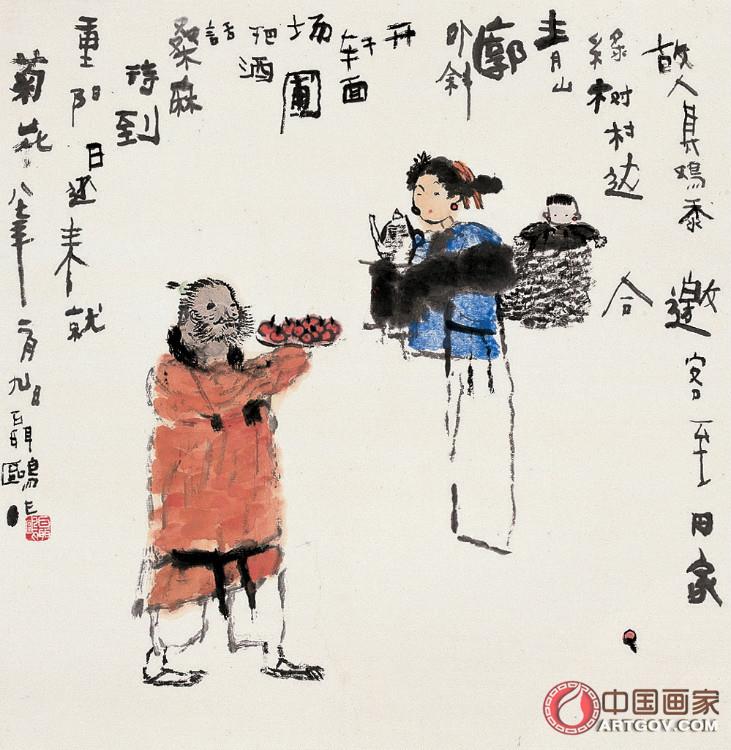 故人具鸡黍
邀客至田家
緑树村边
合
青山
廓
外斜
开
轩面
场圃
把酒
話
桑麻
待到
重阳
日还来就
菊花八七年
月九日聂鸥作
中国画家
ARTGOV.COM